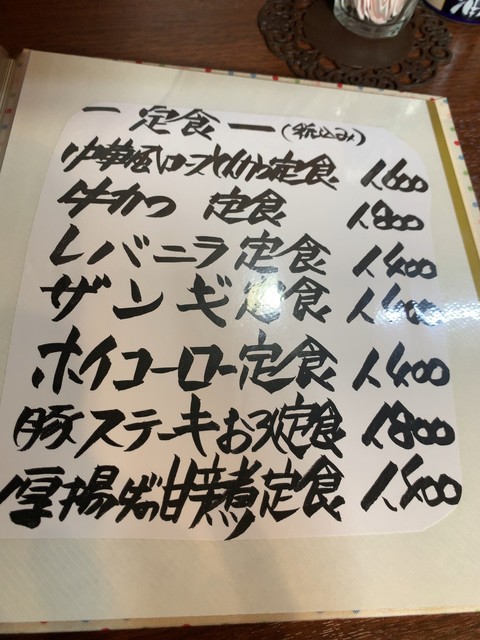 ー 定食 ー (税込み)
中華風ロースとんかつ定食 1,600
牛かつ 定食 1,800
レバニラ定食 1,400
ザンギ定食
ホイコーロー定食 1,400
豚ステーキおろし定食 1,800
厚揚げの甘辛煮定食 1,400